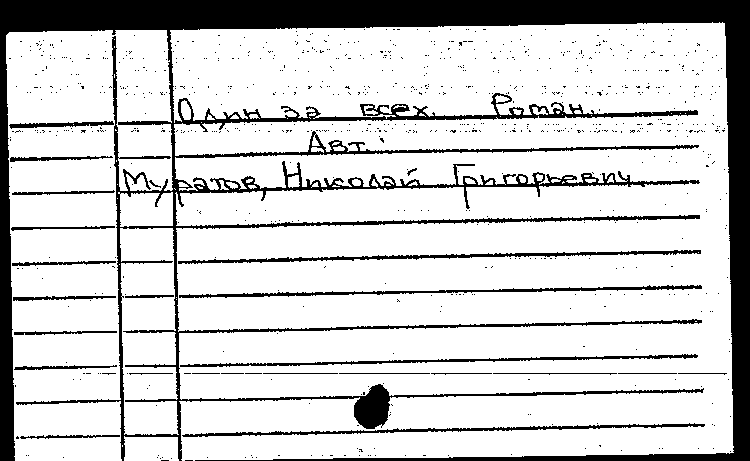 Один за всех. Роман.
Авт.:
Муратов, Николай Григорьевич.